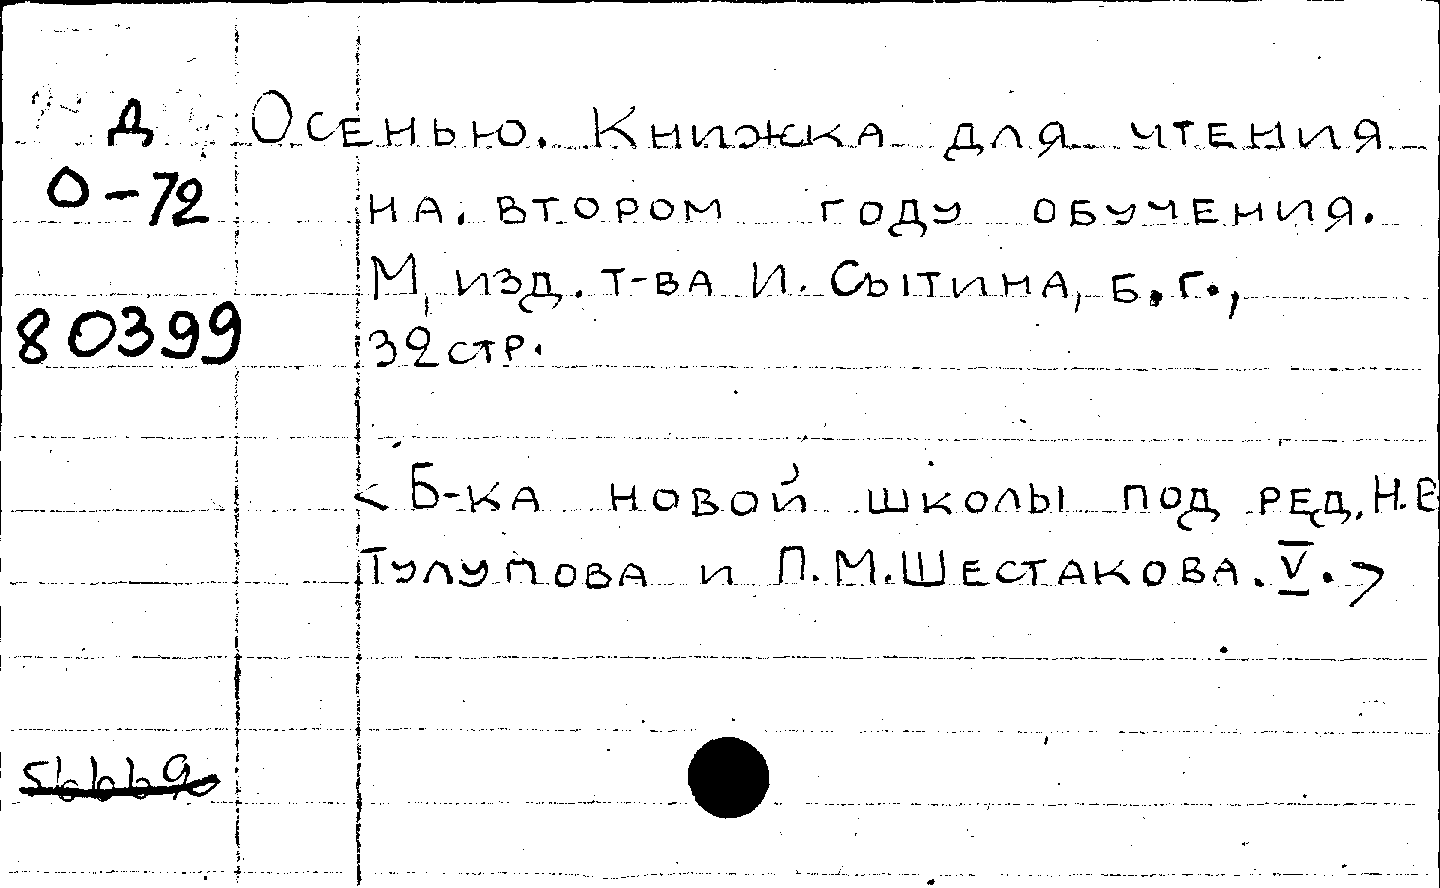 Д Осенью. Книжка для чтения
О-72 на. втором году обучения.
М, изд. т-ва И. Сытина, б.г.,
80399 32 стр.
<Б-ка новой школы под ред. Н.В
Тулупова и П.М.Шестакова. V.>
56669